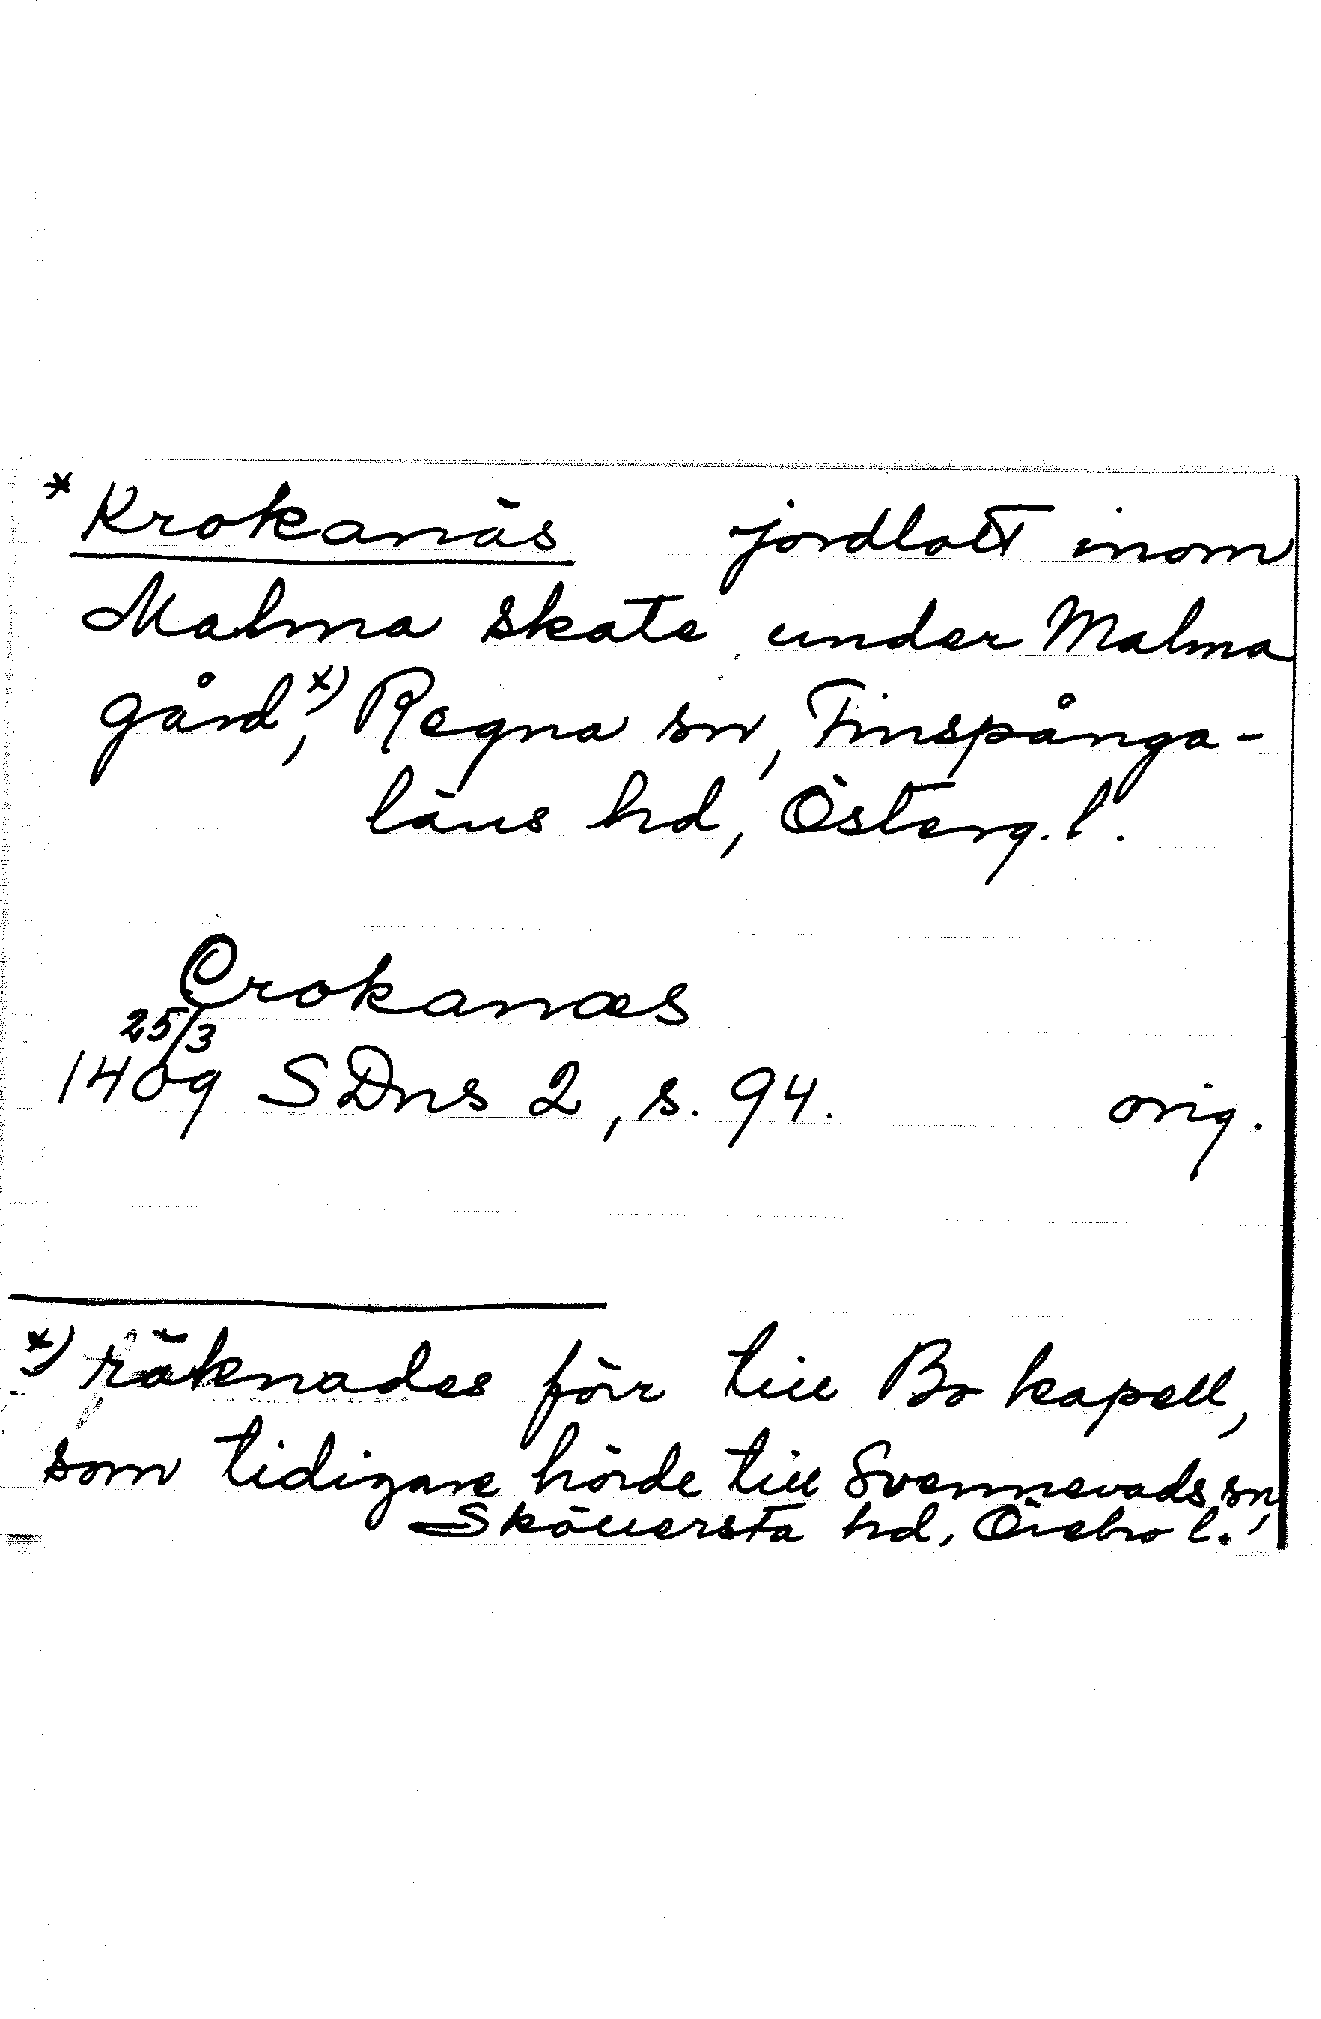 * Krokanäs jordlott inom
Malma skate under Malma
gård,x) Regna sn, Finspånga-
läns hd, Österg. l.
Crokanæs
25/3
1409 SDns 2, s. 94. orig.
x) räknades förr till Bo kapell,
som tidigare hörde till Svennevads sn,
Sköllersta hd, Örebro l.